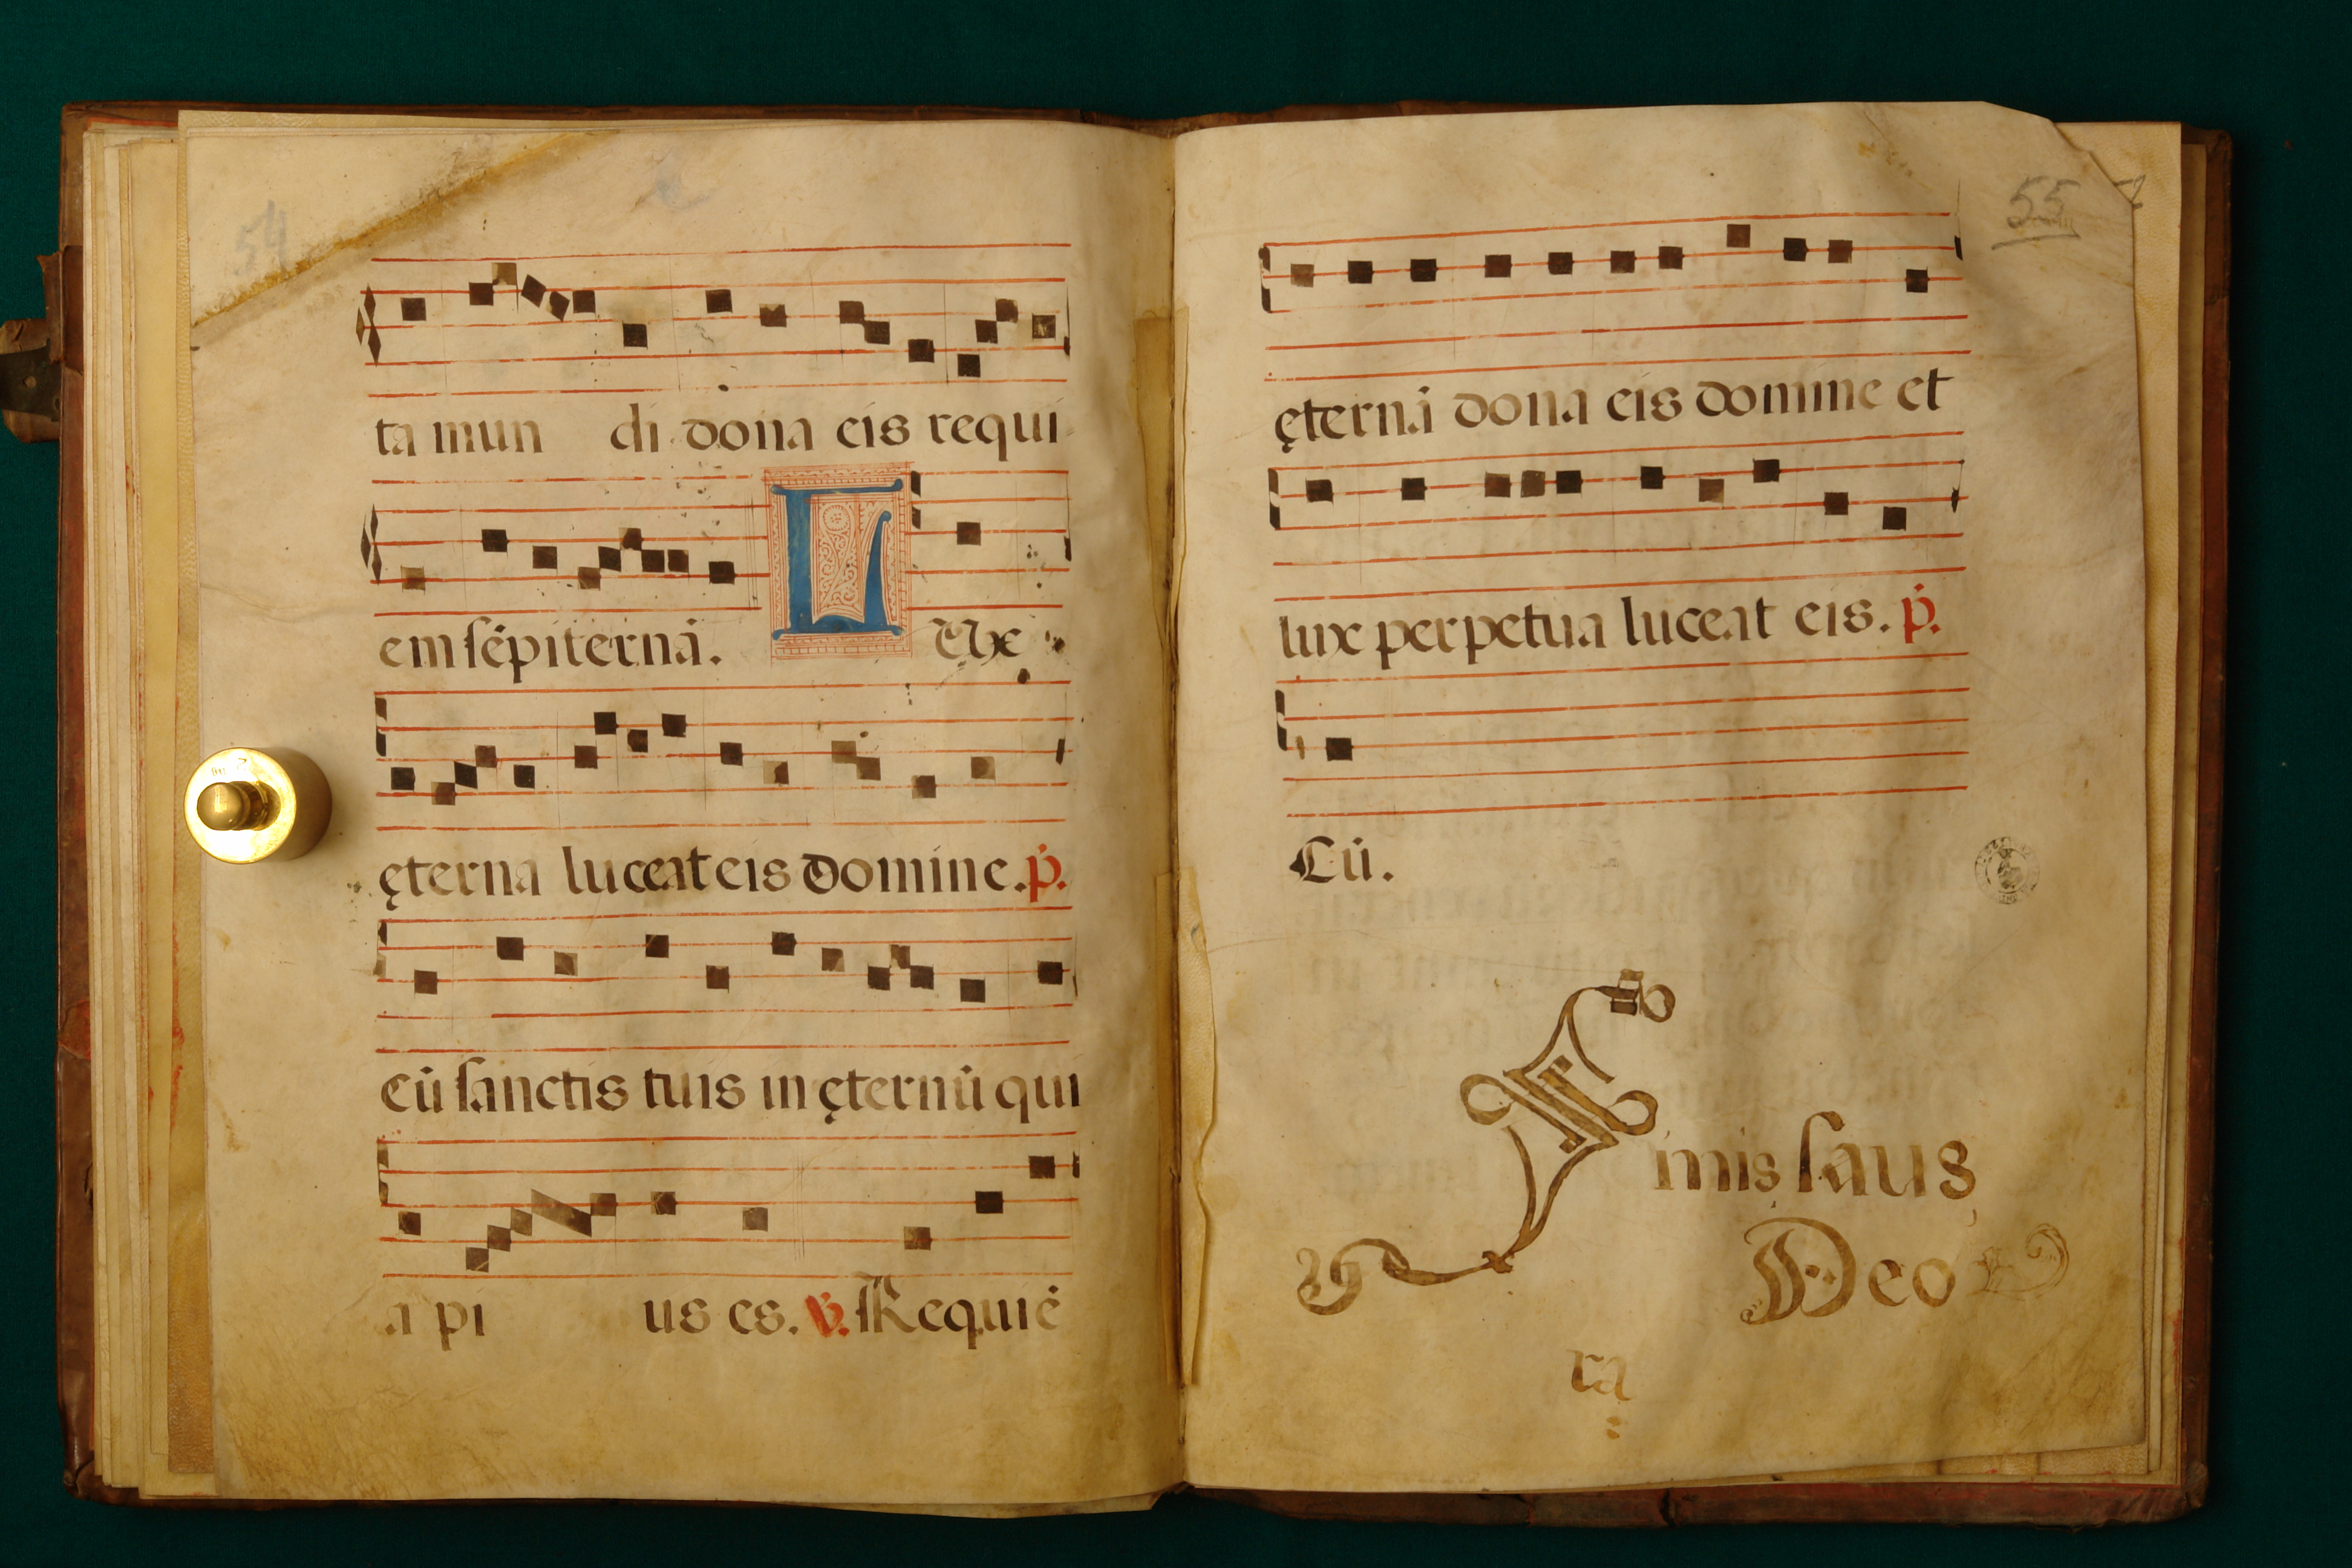 54
ta mun di dona eis requi
em sēpiternā.
L Vx
ęterna luceat eis domine. p̄.
Cū sanctis tuis in ęternū qui
a pi us es. ꝟ. Requiē
55
ęternā dona eis domine et
lux perpetua luceat eis. p̄.
Cū.
Finis laus
Deo
ra